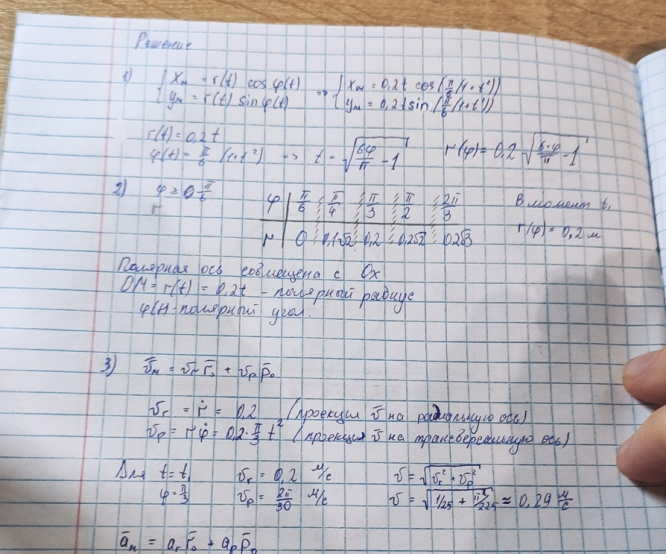 Решение
1) { xₘ = r(t) cos φ(t) ⇒ { xₘ = 0,2t cos(π/6 (1+t²))
{ yₘ = r(t) sin φ(t) { yₘ = 0,2t sin(π/6 (1+t²))
r(t) = 0,2t
φ(t) = π/6 (1+t²) => t = √(6φ/π − 1) r(φ) = 0,2 √(6·φ/π − 1)
2) φ ≥ π/6 φ | π/6 | π/4 | π/3 | π/2 | 2π/3 В момент t₁
r | 0 | 0,1√2 | 0,2 | 0,2√2 | 0,2√3 r(φ) = 0,2 м
Полярная ось совмещена с Ox
OM = r(t) = 0,2t – полярный радиус
φ(t) – полярный угол.
3) v̄ₘ = vᵣ r̄₀ + vₚ p̄₀
vᵣ = ṙ = 0,2 (проекция v̄ на радиальную ось)
vₚ = r φ̇ = 0,2 · π/3 t² (проекция v̄ на трансверсальную ось)
Для t = t₁ vᵣ = 0,2 м/с v = √(vᵣ² + vₚ²)
φ = π/3 vₚ = 2π/30 м/с v = √(1/25 + π²/225) ≈ 0,29 м/с
āₘ = aᵣ r̄₀ + aₚ p̄₀